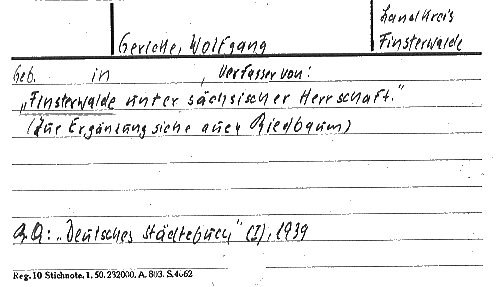 Landkreis
Gericke, Wolfgang Finsterwalde
Geb. in , Verfasser von:
"Finsterwalde unter sächsischer Herrschaft."
(Zur Ergänzung siehe auch Riedbaum)
"Deutsches Städtebuch" (I), 1939
Reg. 10 Stichnote. 1. 50. 232000. A. 803. S. 4062